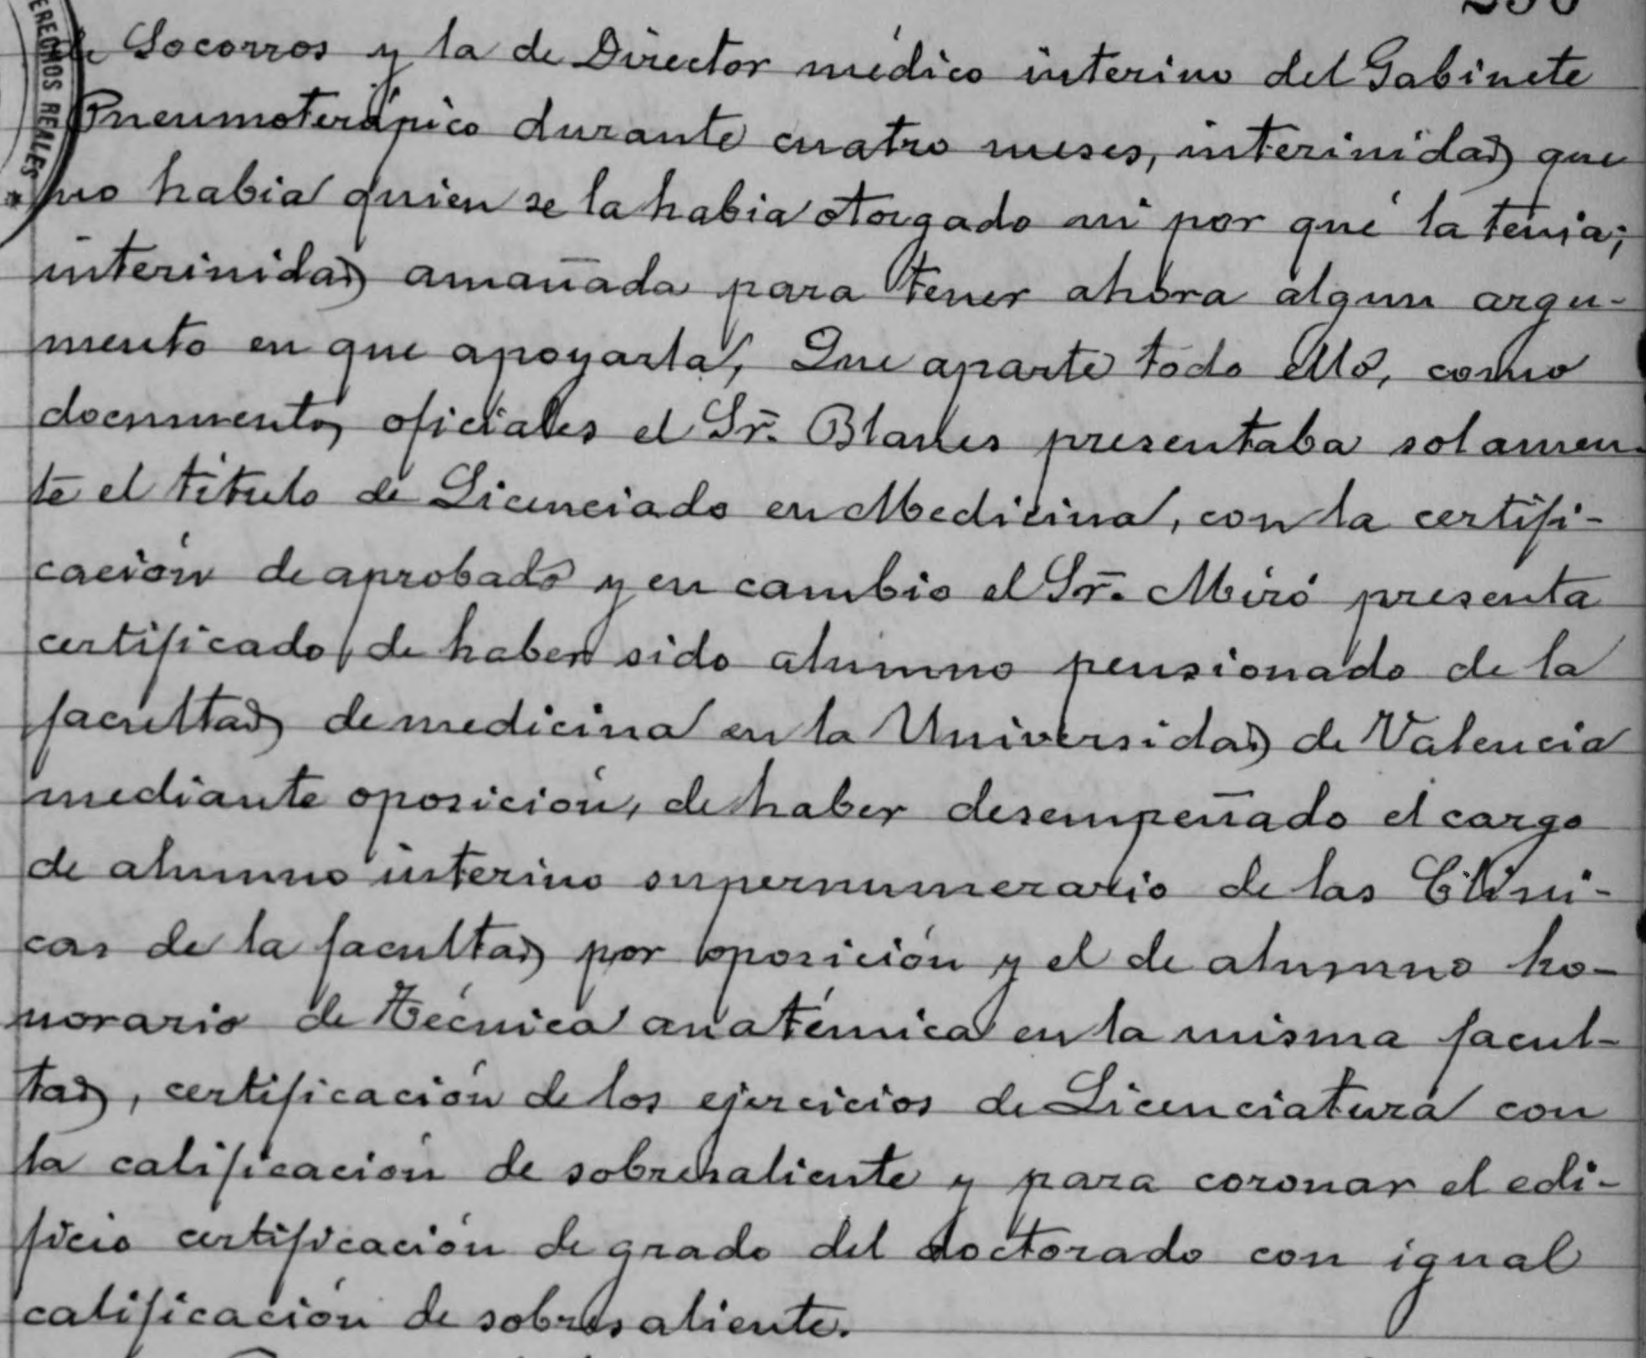 de Socorros y la de Director médico interino del Gabinete
Pneumoterápico durante cuatro meses, interinidad que
no habia quien se la habia otorgado ni por qué la tenia;
interinidad amañada para tener ahora algun argu-
mento en que apoyarla, Que aparte todo ello, como
documentos oficiales el Sr. Blanes presentaba solamen-
te el titulo de Licenciado en Medicina, con la certifi-
cación de aprobado y en cambio el Sr. Miró presenta
certificado de haber sido alumno pensionado de la
facultad de medicina en la Universidad de Valencia
mediante oposición, de haber desempeñado el cargo
de alumno interino supernumerario de las Clíni-
cas de la facultad por oposición y el de alumno ho-
norario de Técnica anatémica en la misma facul-
tad, certificación de los ejercicios de Licenciatura con
la calificación de sobresaliente y para coronar el edi-
ficio certificación de grado del doctorado con igual
calificación de sobresaliente.
ERECHOS REALES *